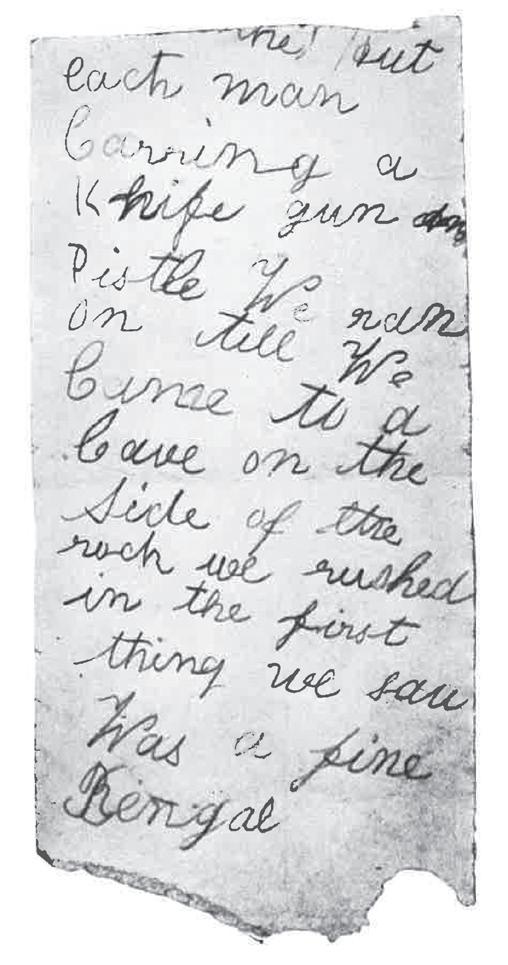 but
each man
Carring a
Knife gun
Pistle We ran
on till We
Came to a
Cave on the
Side of the
rock we rushed
in the first
thing we saw
Was a fine
Bengal